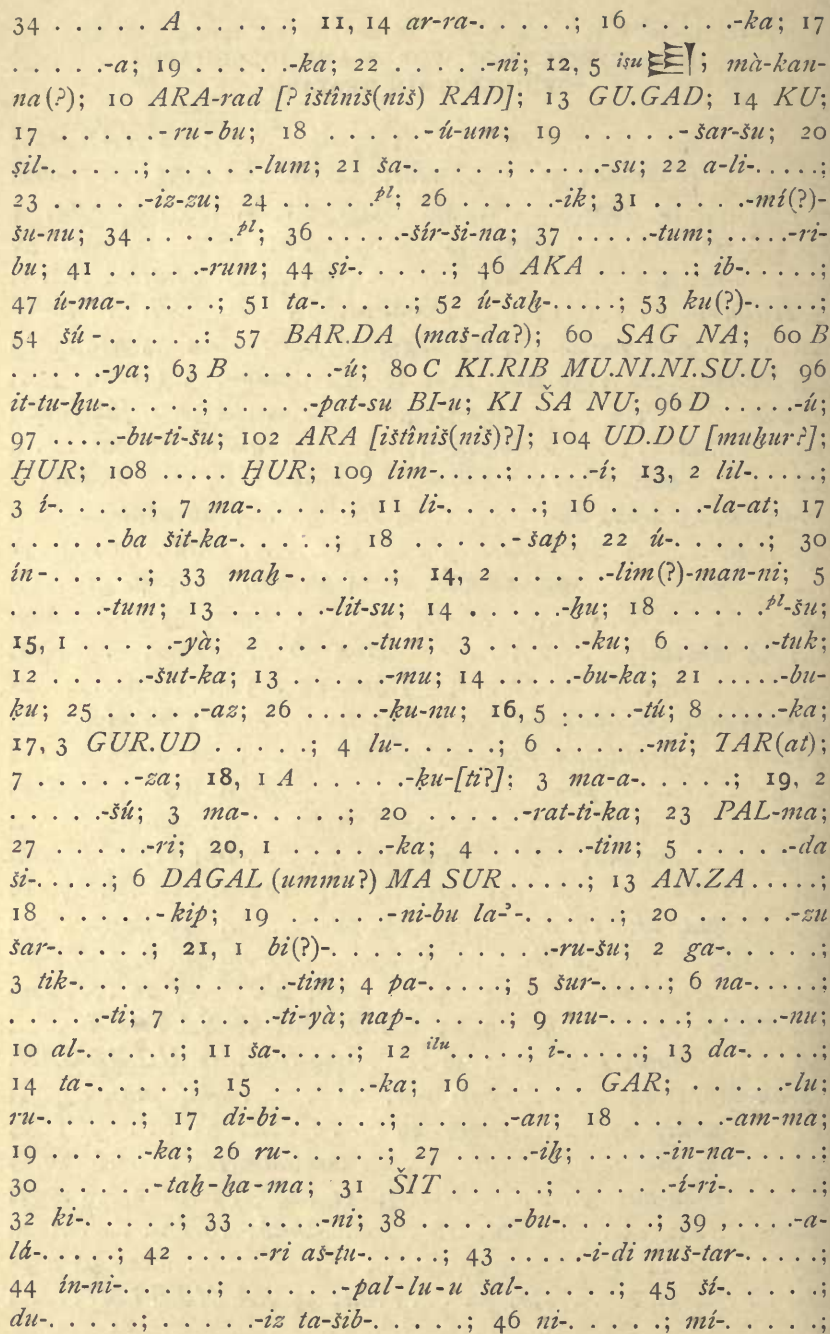 34 . . . . . A . . . . .; 11, 14 ar-ra-. . . . .; 16 . . . . .-ka; 17
. . . . .-a; 19 . . . . .-ka; 22 . . . . .-ni; 12, 5 iṣu ; mà-kan-
na(?); 10 ARA-rad [? ištîniš(niš) RAD]; 13 GU.GAD; 14 KU;
17 . . . . .-ru-bu; 18 . . . . .-ú-um; 19 . . . . .-šar-šu; 20
ṣil-. . . . .; . . . . .-lum; 21 ša-. . . . .; . . . . .-su; 22 a-li-. . . . .;
23 . . . . .-iz-zu; 24 . . . . .pl; 26 . . . . .-ik; 31 . . . . .-mí(?)-
šu-nu; 34 . . . . .pl; 36 . . . . .-šír-ši-na; 37 . . . . .-tum; . . . . .-ri-
bu; 41 . . . . .-rum; 44 ṣi-. . . . .; 46 AKA . . . . .; ib-. . . . .;
47 ú-ma-. . . . .; 51 ta-. . . . .; 52 ú-šaḫ-. . . . .; 53 ku(?)-. . . . .;
54 šú-. . . . .: 57 BAR.DA (maš-da?); 60 SAG NA; 60 B
. . . . .-ya; 63 B . . . . .-ú; 80 C KI.RIB MU.NI.NI.SU.U; 96
it-tu-ḫu-. . . . .; . . . . .-pat-su BI-u; KI ŠA NU; 96 D . . . . .-ú;
97 . . . . .-bu-ti-šu; 102 ARA [ištîniš(niš)?]; 104 UD.DU [muḫur?];
ḪUR; 108 . . . . . ḪUR; 109 lim-. . . . .; . . . . .-í; 13, 2 lil-. . . . .;
3 í-. . . . .; 7 ma-. . . . .; 11 li-. . . . .; 16 . . . . .-la-at; 17
. . . . .-ba šit-ka-. . . . .; 18 . . . . .-šap; 22 ú-. . . . .; 30
ín-. . . . .; 33 maḫ-. . . . .; 14, 2 . . . . .-lim(?)-man-ni; 5
. . . . .-tum; 13 . . . . .-lit-su; 14 . . . . .-ḫu; 18 . . . . .pl-šu;
15, 1 . . . . .-yà; 2 . . . . .-tum; 3 . . . . .-ku; 6 . . . . .-tuk;
12 . . . . .-šut-ka; 13 . . . . .-mu; 14 . . . . .-bu-ka; 21 . . . . .-bu-
ḳu; 25 . . . . .-az; 26 . . . . .-ḳu-nu; 16, 5 . . . . .-tú; 8 . . . . .-ka;
17, 3 GUR.UD . . . . .; 4 lu-. . . . .; 6 . . . . .-mi; TAR(at);
7 . . . . .-za; 18, 1 A . . . . .-ḳu-[ti?]; 3 ma-a-. . . . .; 19, 2
. . . . .-šú; 3 ma-. . . . .; 20 . . . . .-rat-ti-ka; 23 PAL-ma;
27 . . . . .-ri; 20, 1 . . . . .-ka; 4 . . . . .-tim; 5 . . . . .-da
ši-. . . . .; 6 DAGAL (ummu?) MA SUR . . . . .; 13 AN.ZA . . . . .;
18 . . . . .-kip; 19 . . . . .-ni-bu la-ʾ-. . . . .; 20 . . . . .-zu
šar-. . . . .; 21, 1 bi(?)-. . . . .; . . . . .-ru-šu; 2 ga-. . . . .;
3 tik-. . . . .; . . . . .-tim; 4 pa-. . . . .; 5 šur-. . . . .; 6 na-. . . . .;
. . . . .-ti; 7 . . . . .-ti-yà; nap-. . . . .; 9 mu-. . . . .; . . . . .-nu;
10 al-. . . . .; 11 ša-. . . . .; 12 ilu. . . . .; i-. . . . .; 13 da-. . . . .;
14 ta-. . . . .; 15 . . . . .-ka; 16 . . . . . GAR; . . . . .-lu;
ru-. . . . .; 17 di-bi-. . . . .; . . . . .-an; 18 . . . . .-am-ma;
19 . . . . .-ka; 26 ru-. . . . .; 27 . . . . .-iḫ; . . . . .-in-na-. . . . .;
30 . . . . .-taḫ-ḫa-ma; 31 ŠIT . . . . .; . . . . .-í-ri-. . . . .;
32 ki-. . . . .; 33 . . . . .-ni; 38 . . . . .-bu-. . . . .; 39 , . . . .-a-
lá-. . . . .; 42 . . . . .-ri aš-ṭu-. . . . .; 43 . . . . .-i-di muš-tar-. . . . .;
44 ín-ni-. . . . .; . . . . .-pal-lu-u šal-. . . . .; 45 ší-. . . . .;
du-. . . . .; . . . . .-iz ta-šib-. . . . .; 46 ni-. . . . .; mí-. . . . .;